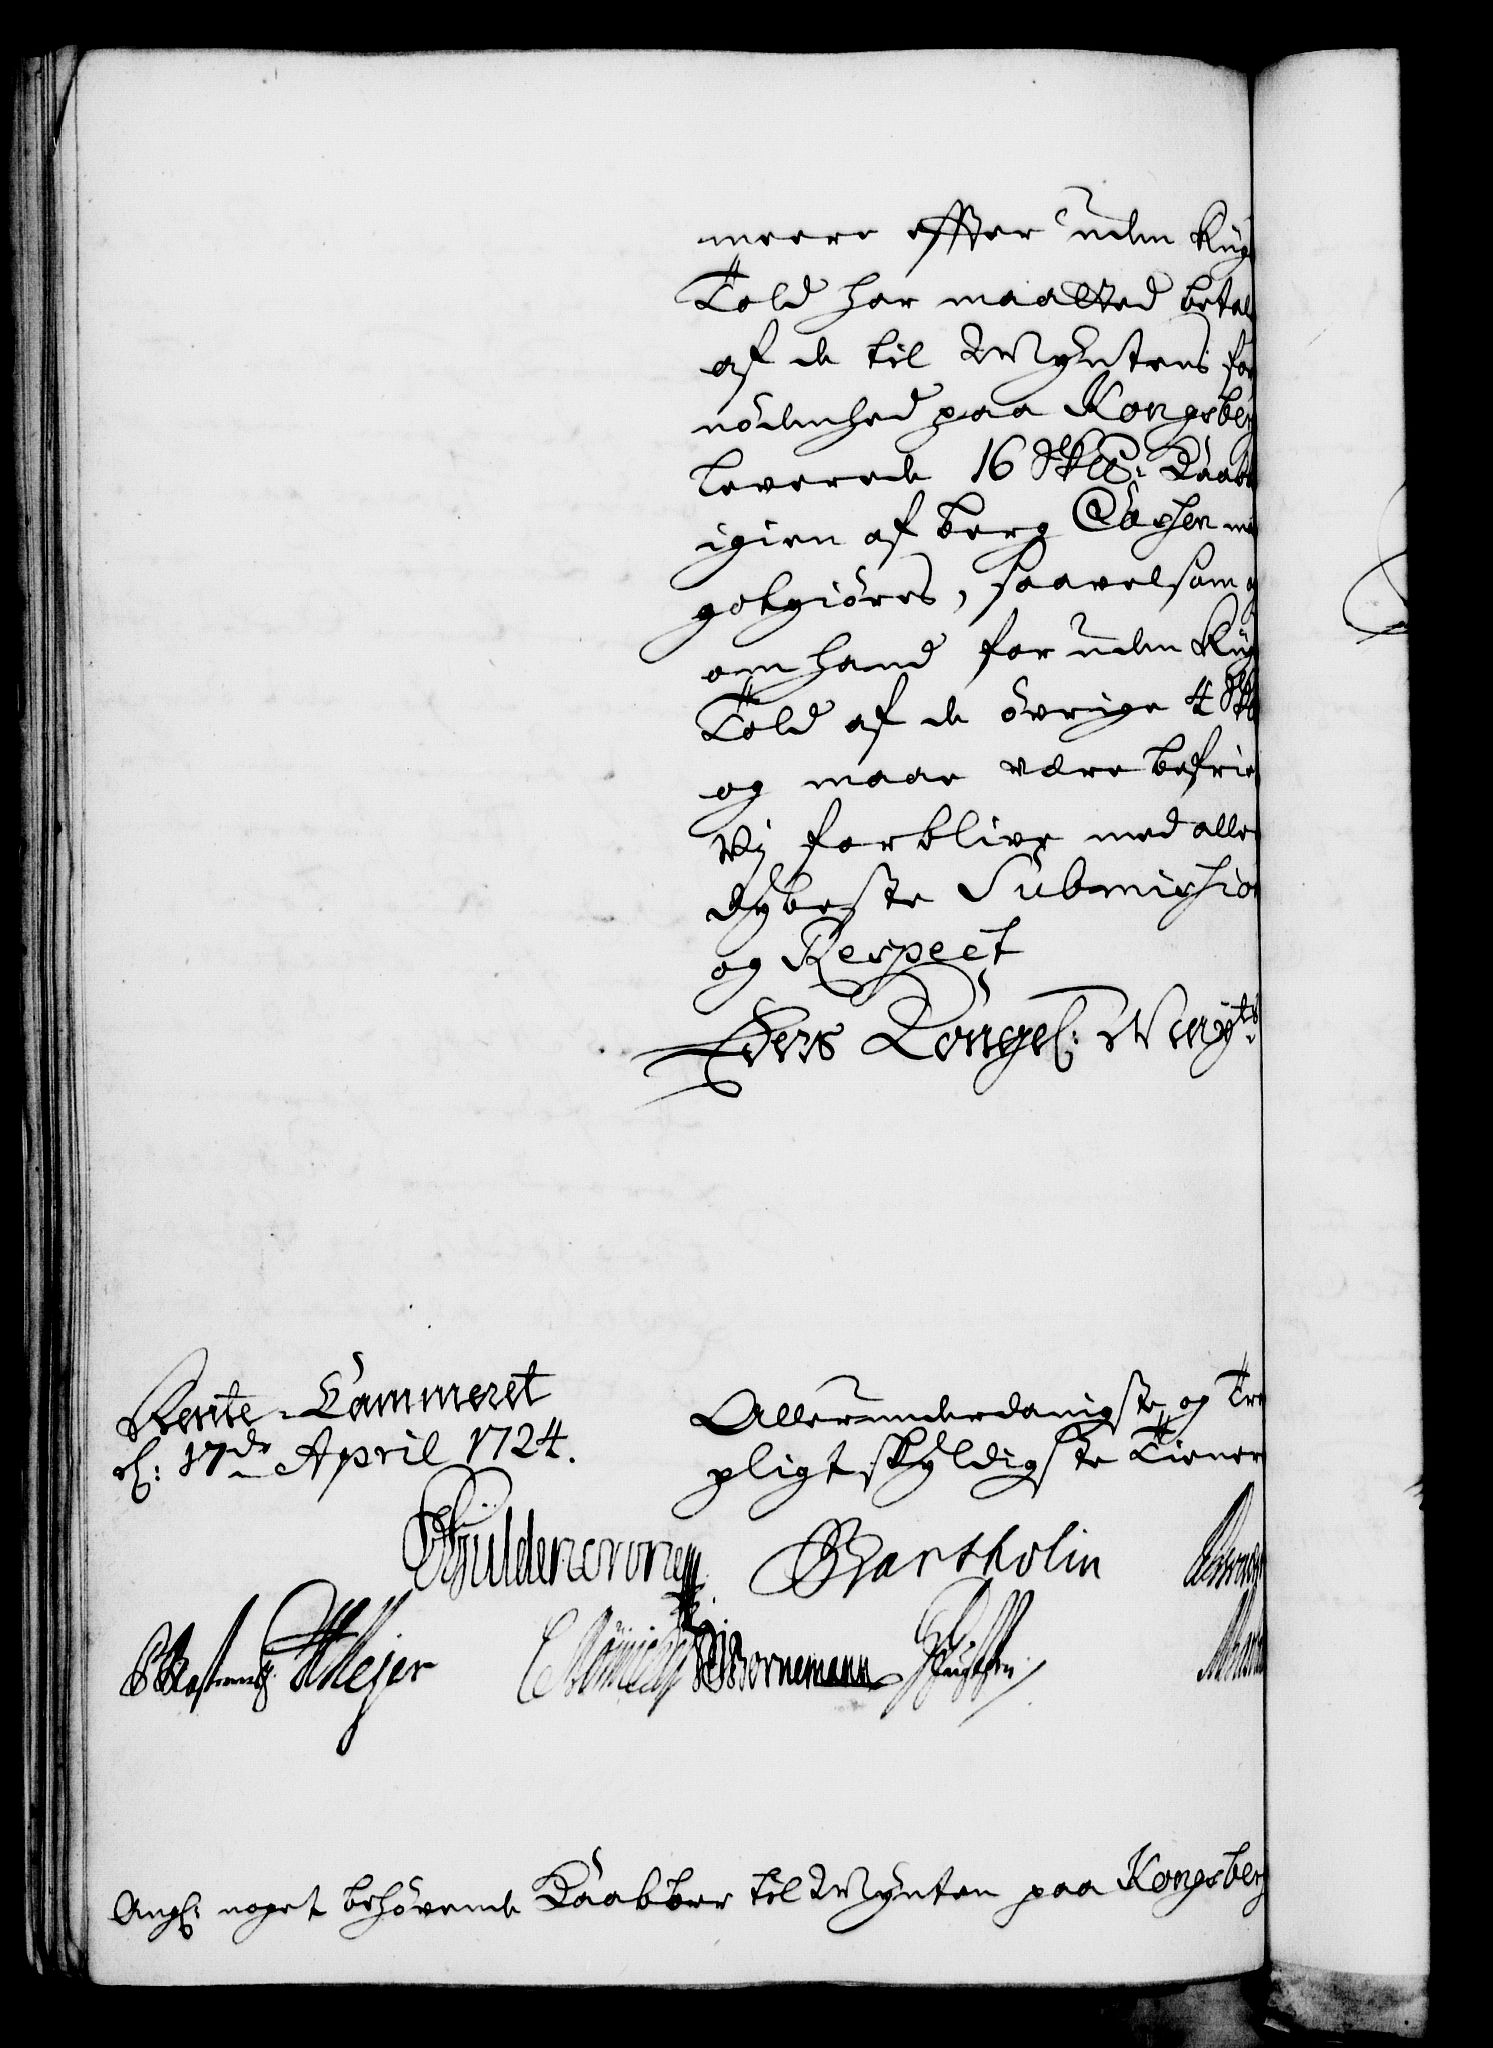 meere effter uden
Told har maatted betal
af de til Myntens for
nödenhed paa Kongsber
leverede 16 Kaab
igien af berg Cassen
gotgiöres, saavelsom
om hand for uden
Told af de övrige 4
og maae være befrie
Vi forblive med aller
dybeste Submission
og Respect
Eders Kongel: Mayts
Rente-Cammeret
d: 17de April 1724.
Allerunderdanigste og Tro
pligtskyldigste Tienere
Güldencrone
Bartholin
Meyer
Bornemann
Angl: noget behövende Kaabber til Mynten paa Kongsberg